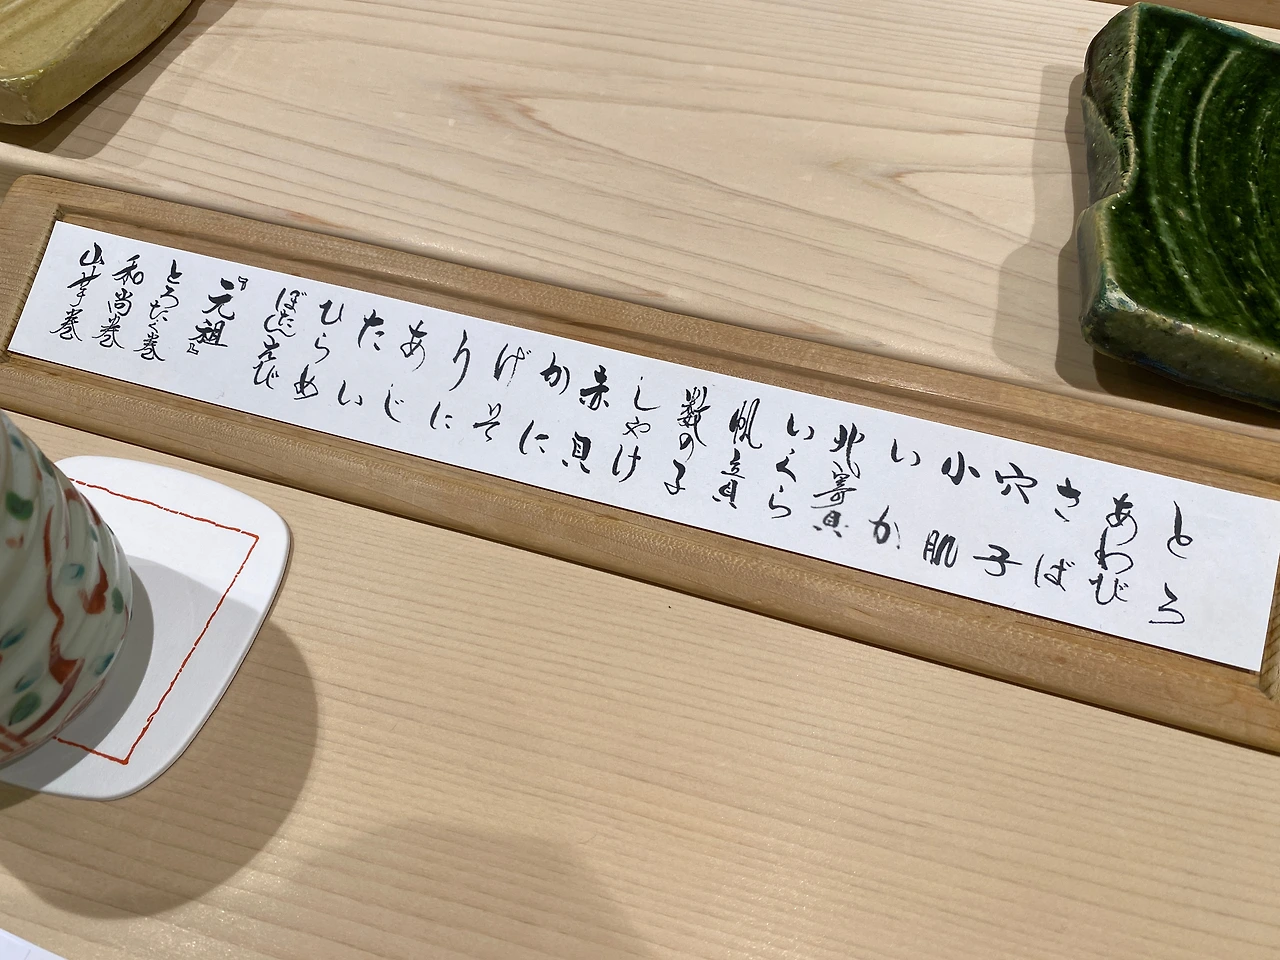 とろ
あわび
さば
穴子
小肌
いか
北寄貝
いくら
帆立貝
数の子
しゃけ
赤貝
かに
げそ
いわし
あじ
たい
ひらめ
ぼたんえび
『元祖』
とろたく巻
和尚巻
山芋巻